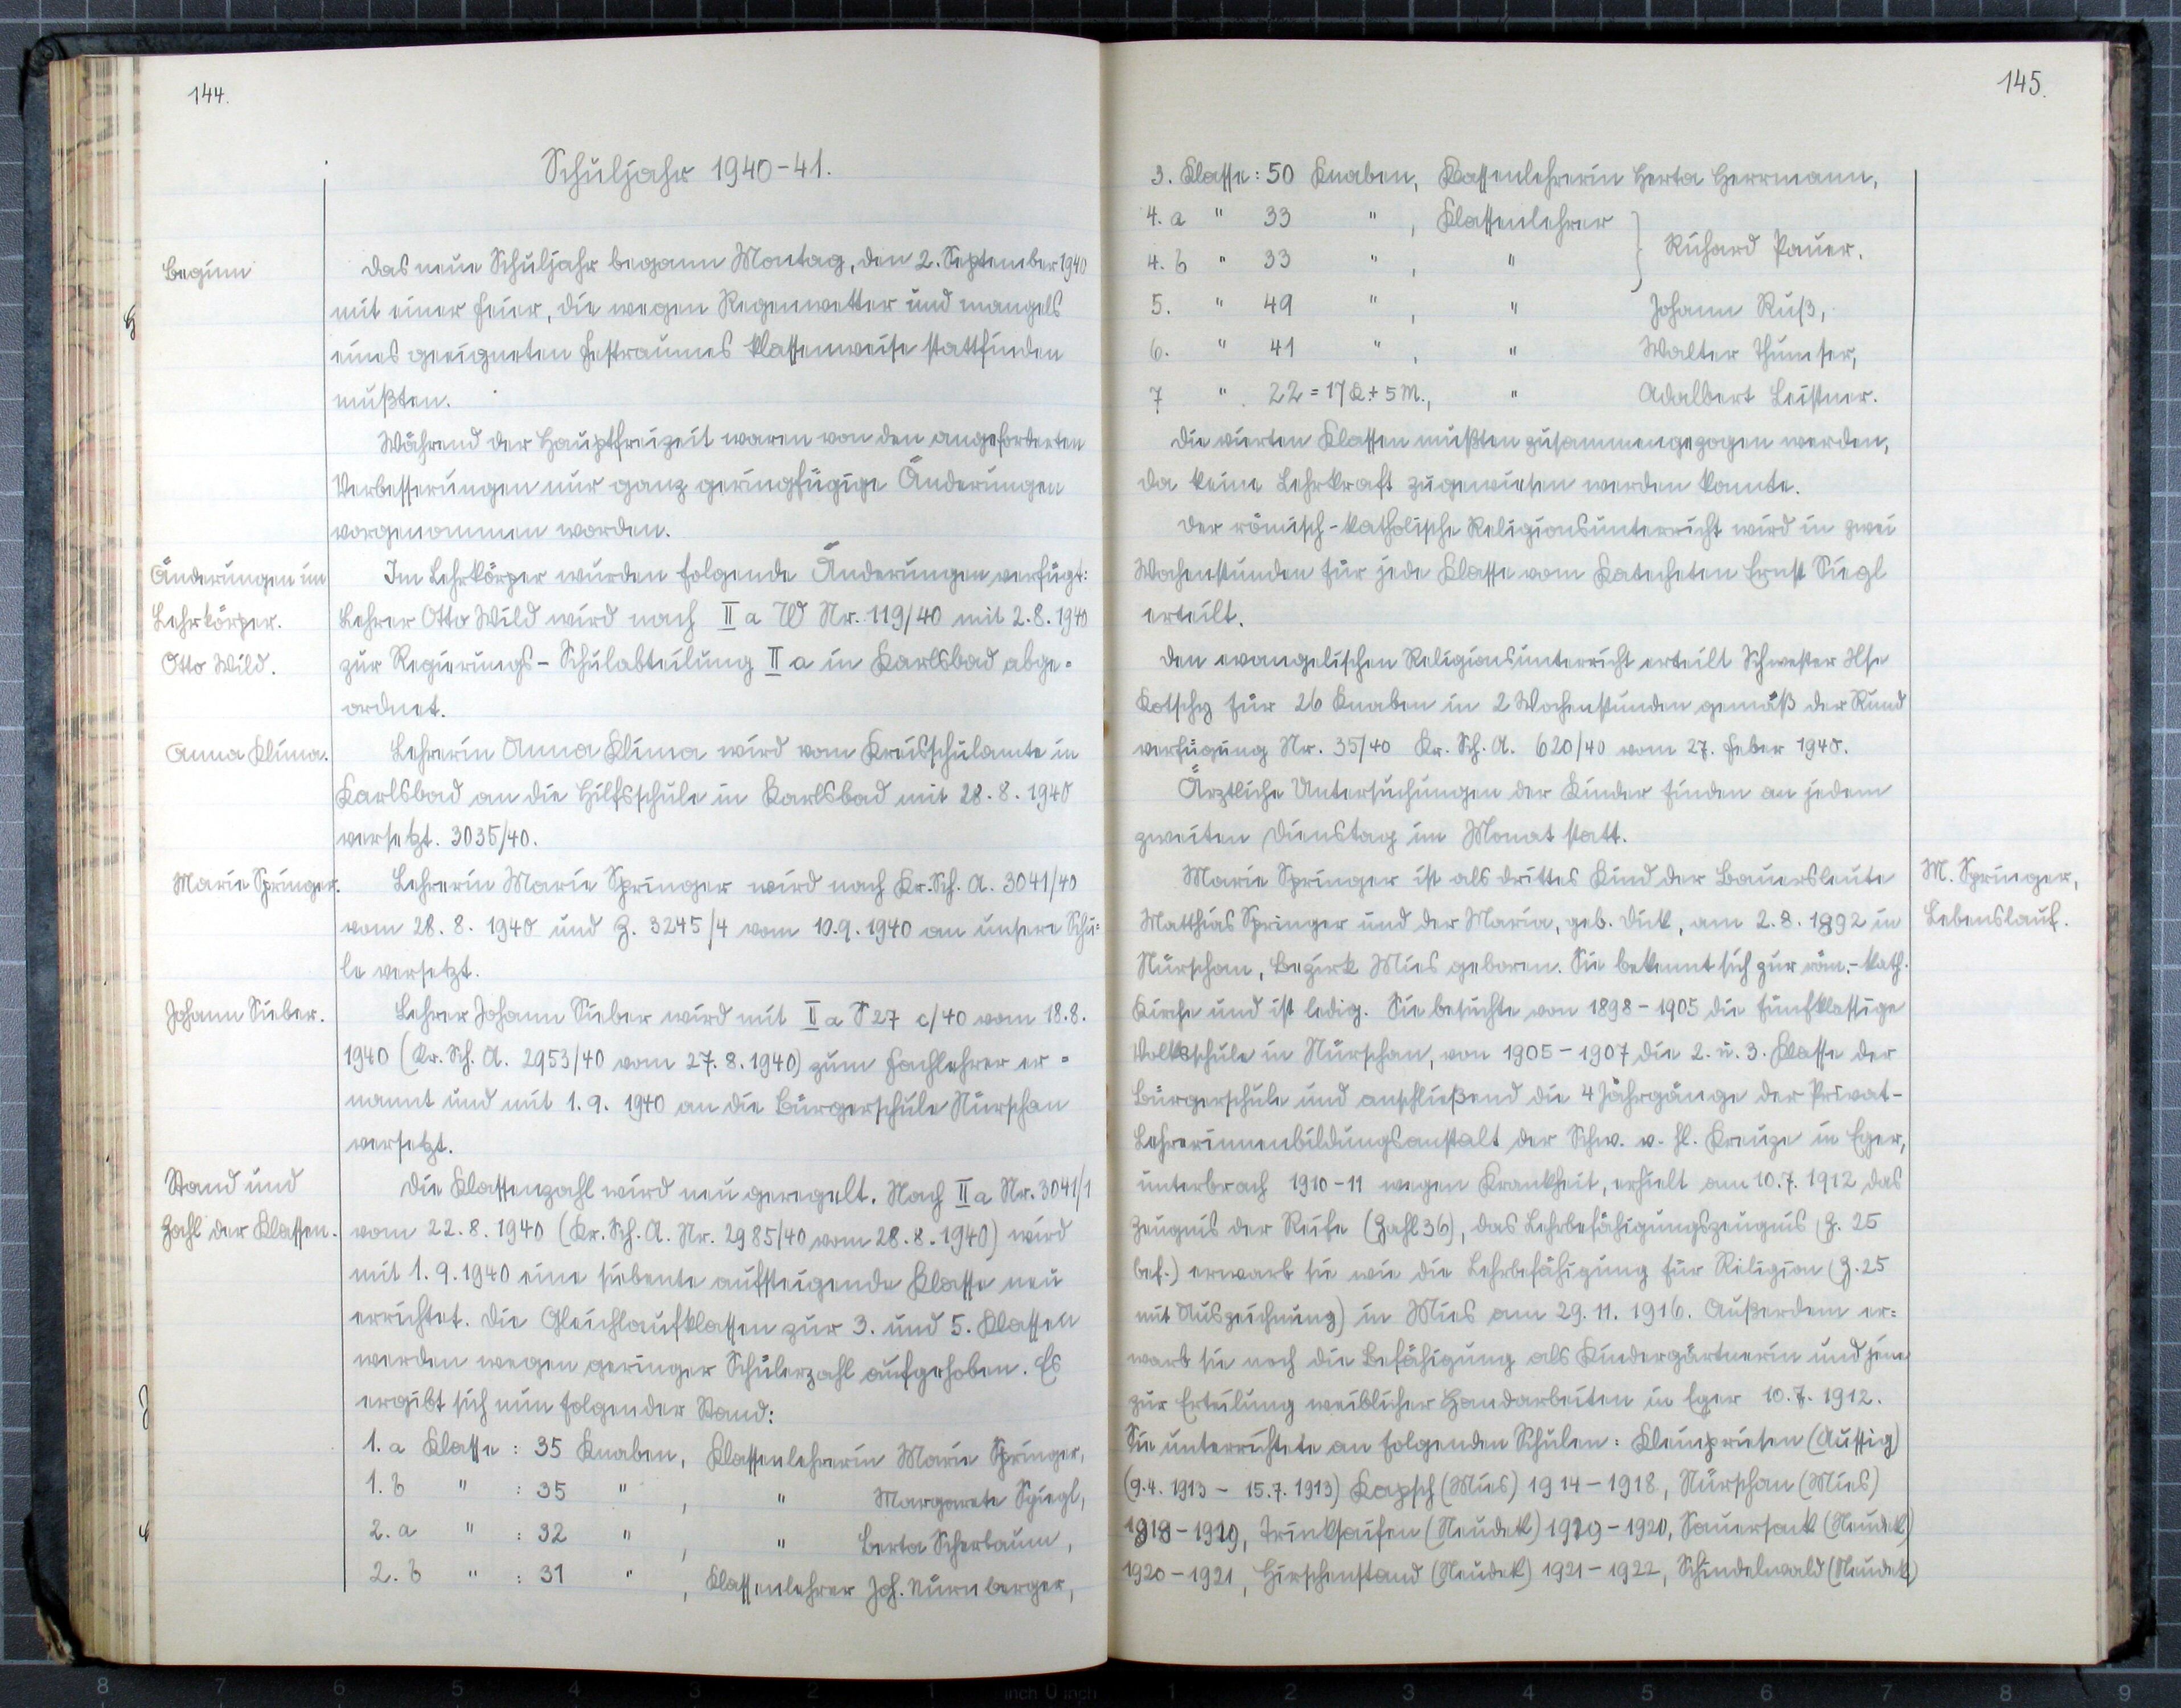 144.
Schuljahr 1940-41.
Beginn
Das neue Schuljahr begann Montag, den 2. September 1940
mit einer Feier, die wegen Regenwetter und mangels
eines geeigneten Festraumes klassenweise stattfinden
mußten.
Während der Hauptfreizeit waren von den angeforderten
Verbesserungen nur ganz geringfügige Änderungen
vorgenommen worden.
Änderungen im
Lehrkörper.
Otto Wild.
Im Lehrkörper wurden folgende Änderungen verfügt:
Lehrer Otto Wild wird nach II a W Nr. 119/40 mit 2.8.1940
zur Regierungs-Schulabteilung II a in Karlsbad abge=
ordnet.
Anna Klima.
Lehrerin Anna Klima wird vom Kreisschulamte in
Karlsbad an die Hilfsschule in Karlsbad mit 28.8.1940
versetzt. 3035/40.
Marie Springer.
Lehrerin Marie Springer wird nach Kr. Sch. A. 3041/40
vom 28.8.1940 und Z. 3245/4 vom 10.9.1940 an unsere Schu=
le versetzt.
Johann Sieber.
Lehrer Johann Sieber wird mit II a S 27 c/40 vom 18.8.
1940 (Kr. Sch. A. 2953/40 vom 27.8.1940) zum Fachlehrer er=
nannt und mit 1.9.1940 an die Bürgerschule Nürschan
versetzt.
Stand und
Zahl der Klassen.
Die Klassenzahl wird neu geregelt. Nach II a Nr. 3041/1
vom 22.8.1940 (Kr. Sch. A. Nr. 2985/40 vom 28.8.1940) wird
mit 1.9.1940 eine siebente aufsteigende Klasse neu
errichtet. Die Gleichlaufklassen zur 3. und 5. Klassen
werden wegen geringer Schülerzahl aufgehoben. Es
ergibt sich nun folgender Stand:
1. a Klasse : 35 Knaben, Klassenlehrerin Marie Springer,
1. b " : 35 " , " Margarete Spiegl,
2. a " : 32 " , " Berta Scherbaum,
2. b " : 31 " , Klassenlehrer Joh. Nürnberger,
145.
3. Klasse: 50 Knaben, Klassenlehrerin Herta Herrmann,
4. a " 33 " , Klassenlehrer
4. b " 33 " , " } Richard Pauer.
5. " 49 " , " Johann Ruß,
6. " 41 " , " Walter Thumser,
7 " 22 = 17 K. + 5 M., " Adalbert Leistner.
Die vierten Klassen mußten zusammengezogen werden,
da keine Lehrkraft zugewiesen werden konnte.
Der römisch-katholische Religionsunterricht wird in zwei
Wochenstunden für jede Klasse vom Katecheten Ernst Siegl
erteilt.
Den evangelischen Religionsunterricht erteilt Schwester Ilse
Kotschy für 26 Knaben in 2 Wochenstunden gemäß der Rund
verfügung Nr. 35/40 Kr. Sch. A. 620/40 vom 27. Feber 1940.
Ärztliche Untersuchungen der Kinder finden an jedem
zweiten Dienstag im Monat statt.
M. Springer,
Lebenslauf.
Marie Springer ist als drittes Kind der Bauersleute
Matthias Springer und der Maria, geb. Dick, am 2.8.1892 in
Nürschan, Bezirk Mies geboren. Sie bekennt sich zur röm.-kath.
Kirche und ist ledig. Sie besuchte von 1898-1905 die fünfklassige
Volksschule in Nürschan, von 1905-1907 die 2. u. 3. Klasse der
Bürgerschule und anschließend die 4 Jahrgänge der Privat-
Lehrerinnenbildungsanstalt der Schw. v. hl. Kreuze in Eger,
unterbrach 1910-11 wegen Krankheit, erhielt am 10.7.1912 das
Zeugnis der Reife (Zahl 36), das Lehrbefähigungszeugnis (Z. 25
bef.) erwarb sie wie die Lehrbefähigung für Religion (Z. 25
mit Auszeichnung) in Mies am 29.11.1916. Außerdem er=
warb sie noch die Befähigung als Kindergärtnerin und jene
zur Erteilung weiblicher Handarbeiten in Eger 10.7.1912.
Sie unterrichtete an folgenden Schulen: Kleinpriesen (Aussig)
(9.4.1913 - 15.7.1913) Kapsch (Mies) 1914-1918, Nürschan (Mies)
1918-1919, Trinksaifen (Neudek) 1919-1920, Sauersack (Neudek)
1920-1921, Hirschenstand (Neudek) 1921-1922, Schindelwald (Neudek)